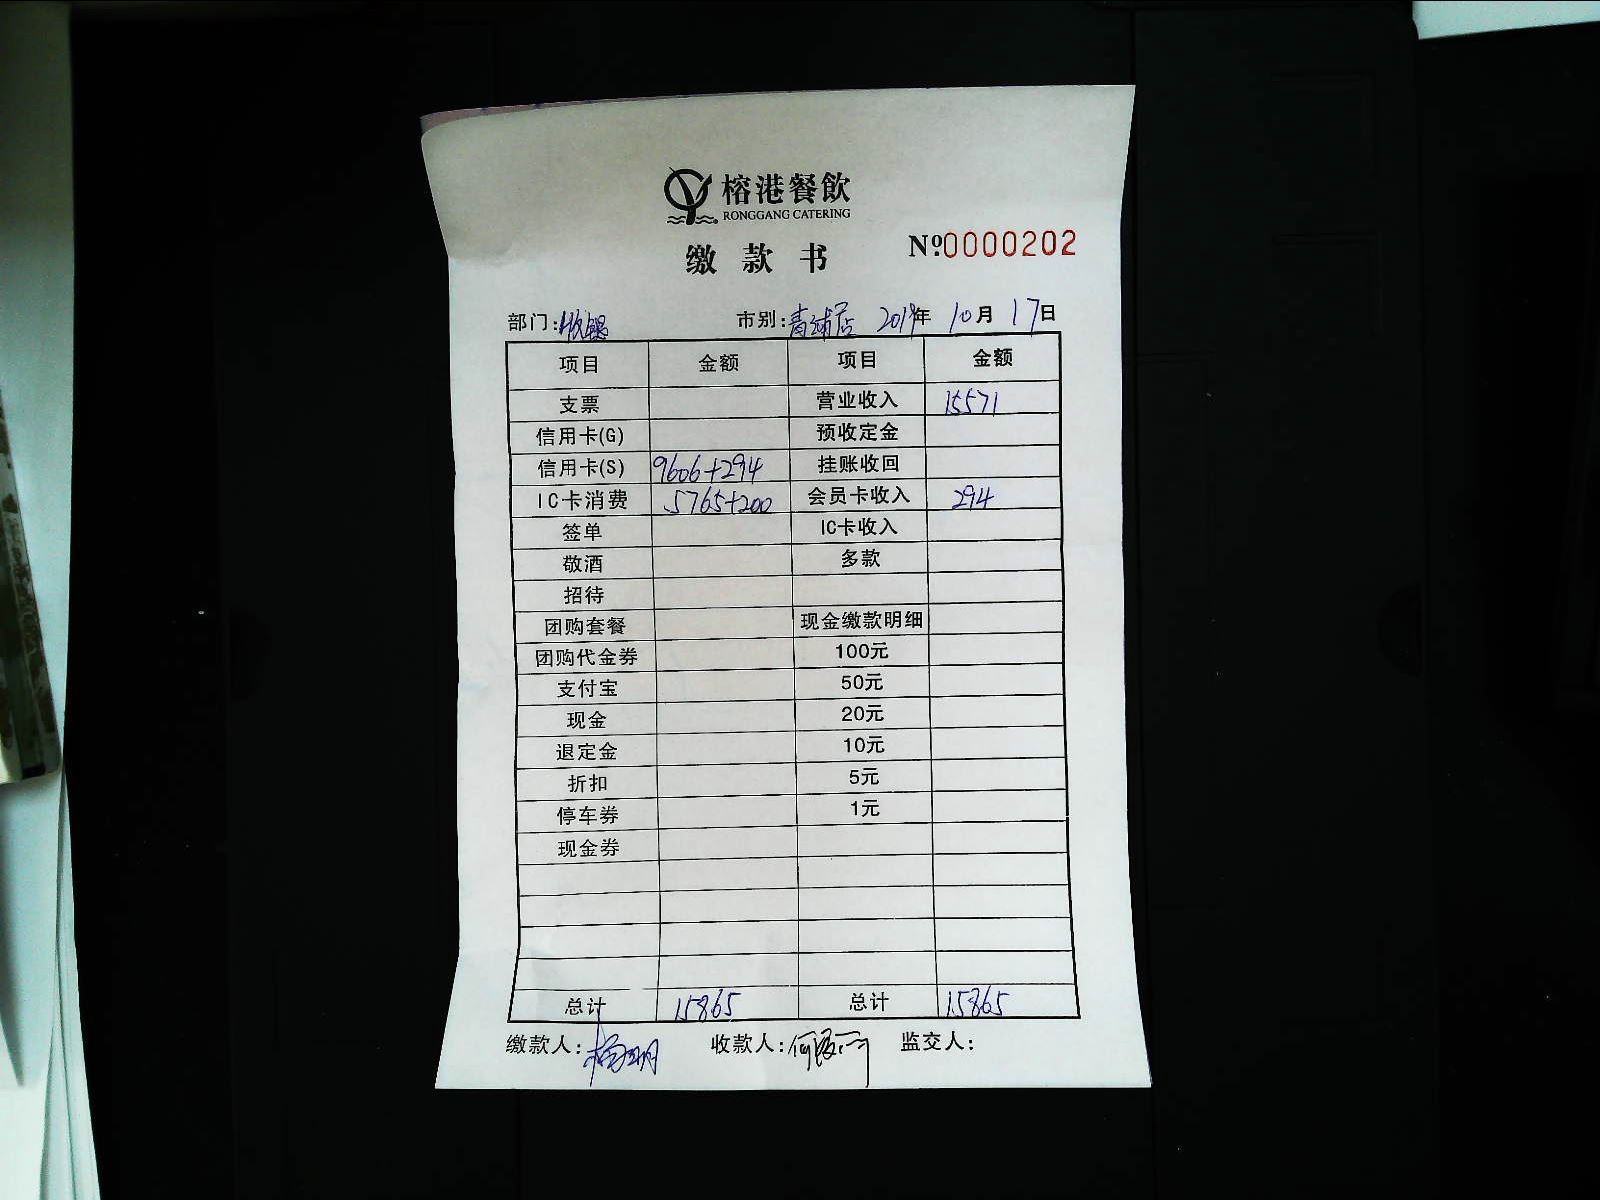 榕港餐飲
RONGGANG CATERING
缴款书 Nº0000202
部门:收银 市别:青浦店 2019年10月17日
项目 金额 项目 金额
支票 营业收入 15571
信用卡(G) 预收定金
信用卡(S) 9606+294 挂账收回
IC卡消费 5765+200 会员卡收入 294
签单 IC卡收入
敬酒 多款
招待
团购套餐 现金缴款明细
团购代金券 100元
支付宝 50元
现金 20元
退定金 10元
折扣 5元
停车券 1元
现金券
总计 15865 总计 15865
缴款人: 收款人: 监交人: